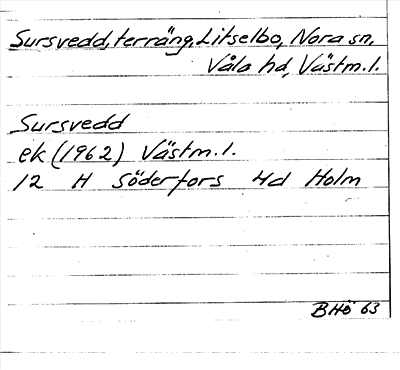 Sursvedd, terräng, Litselbo, Nora sn,
Våla hd, Västm. l.
Sursvedd
ek (1962) Västm. l.
12 H Söderfors 4d Holm
BHö 63